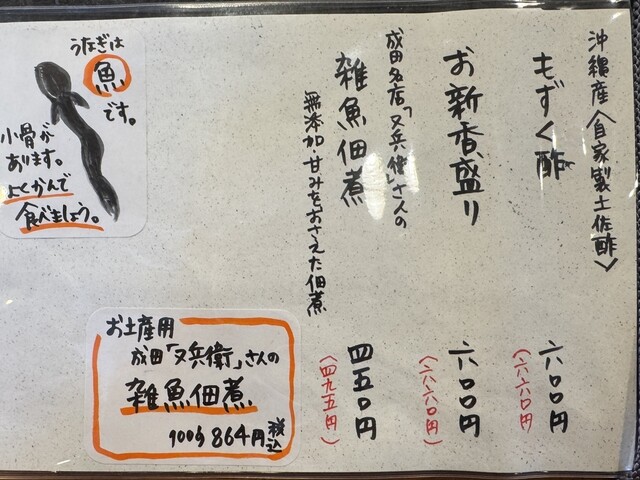 沖縄産〈自家製土佐酢〉
もずく酢
六〇〇円
(六六〇円)
お新香盛り
六〇〇円
(六六〇円)
成田名店「又兵衛」さんの
雑魚佃煮
無添加・甘みをおさえた佃煮
四五〇円
(四九五円)
うなぎは
魚
です。
小骨が
あります。
よくかんで
食べましょう。
お土産用
成田「又兵衛」さんの
雑魚佃煮
100g 864円税込